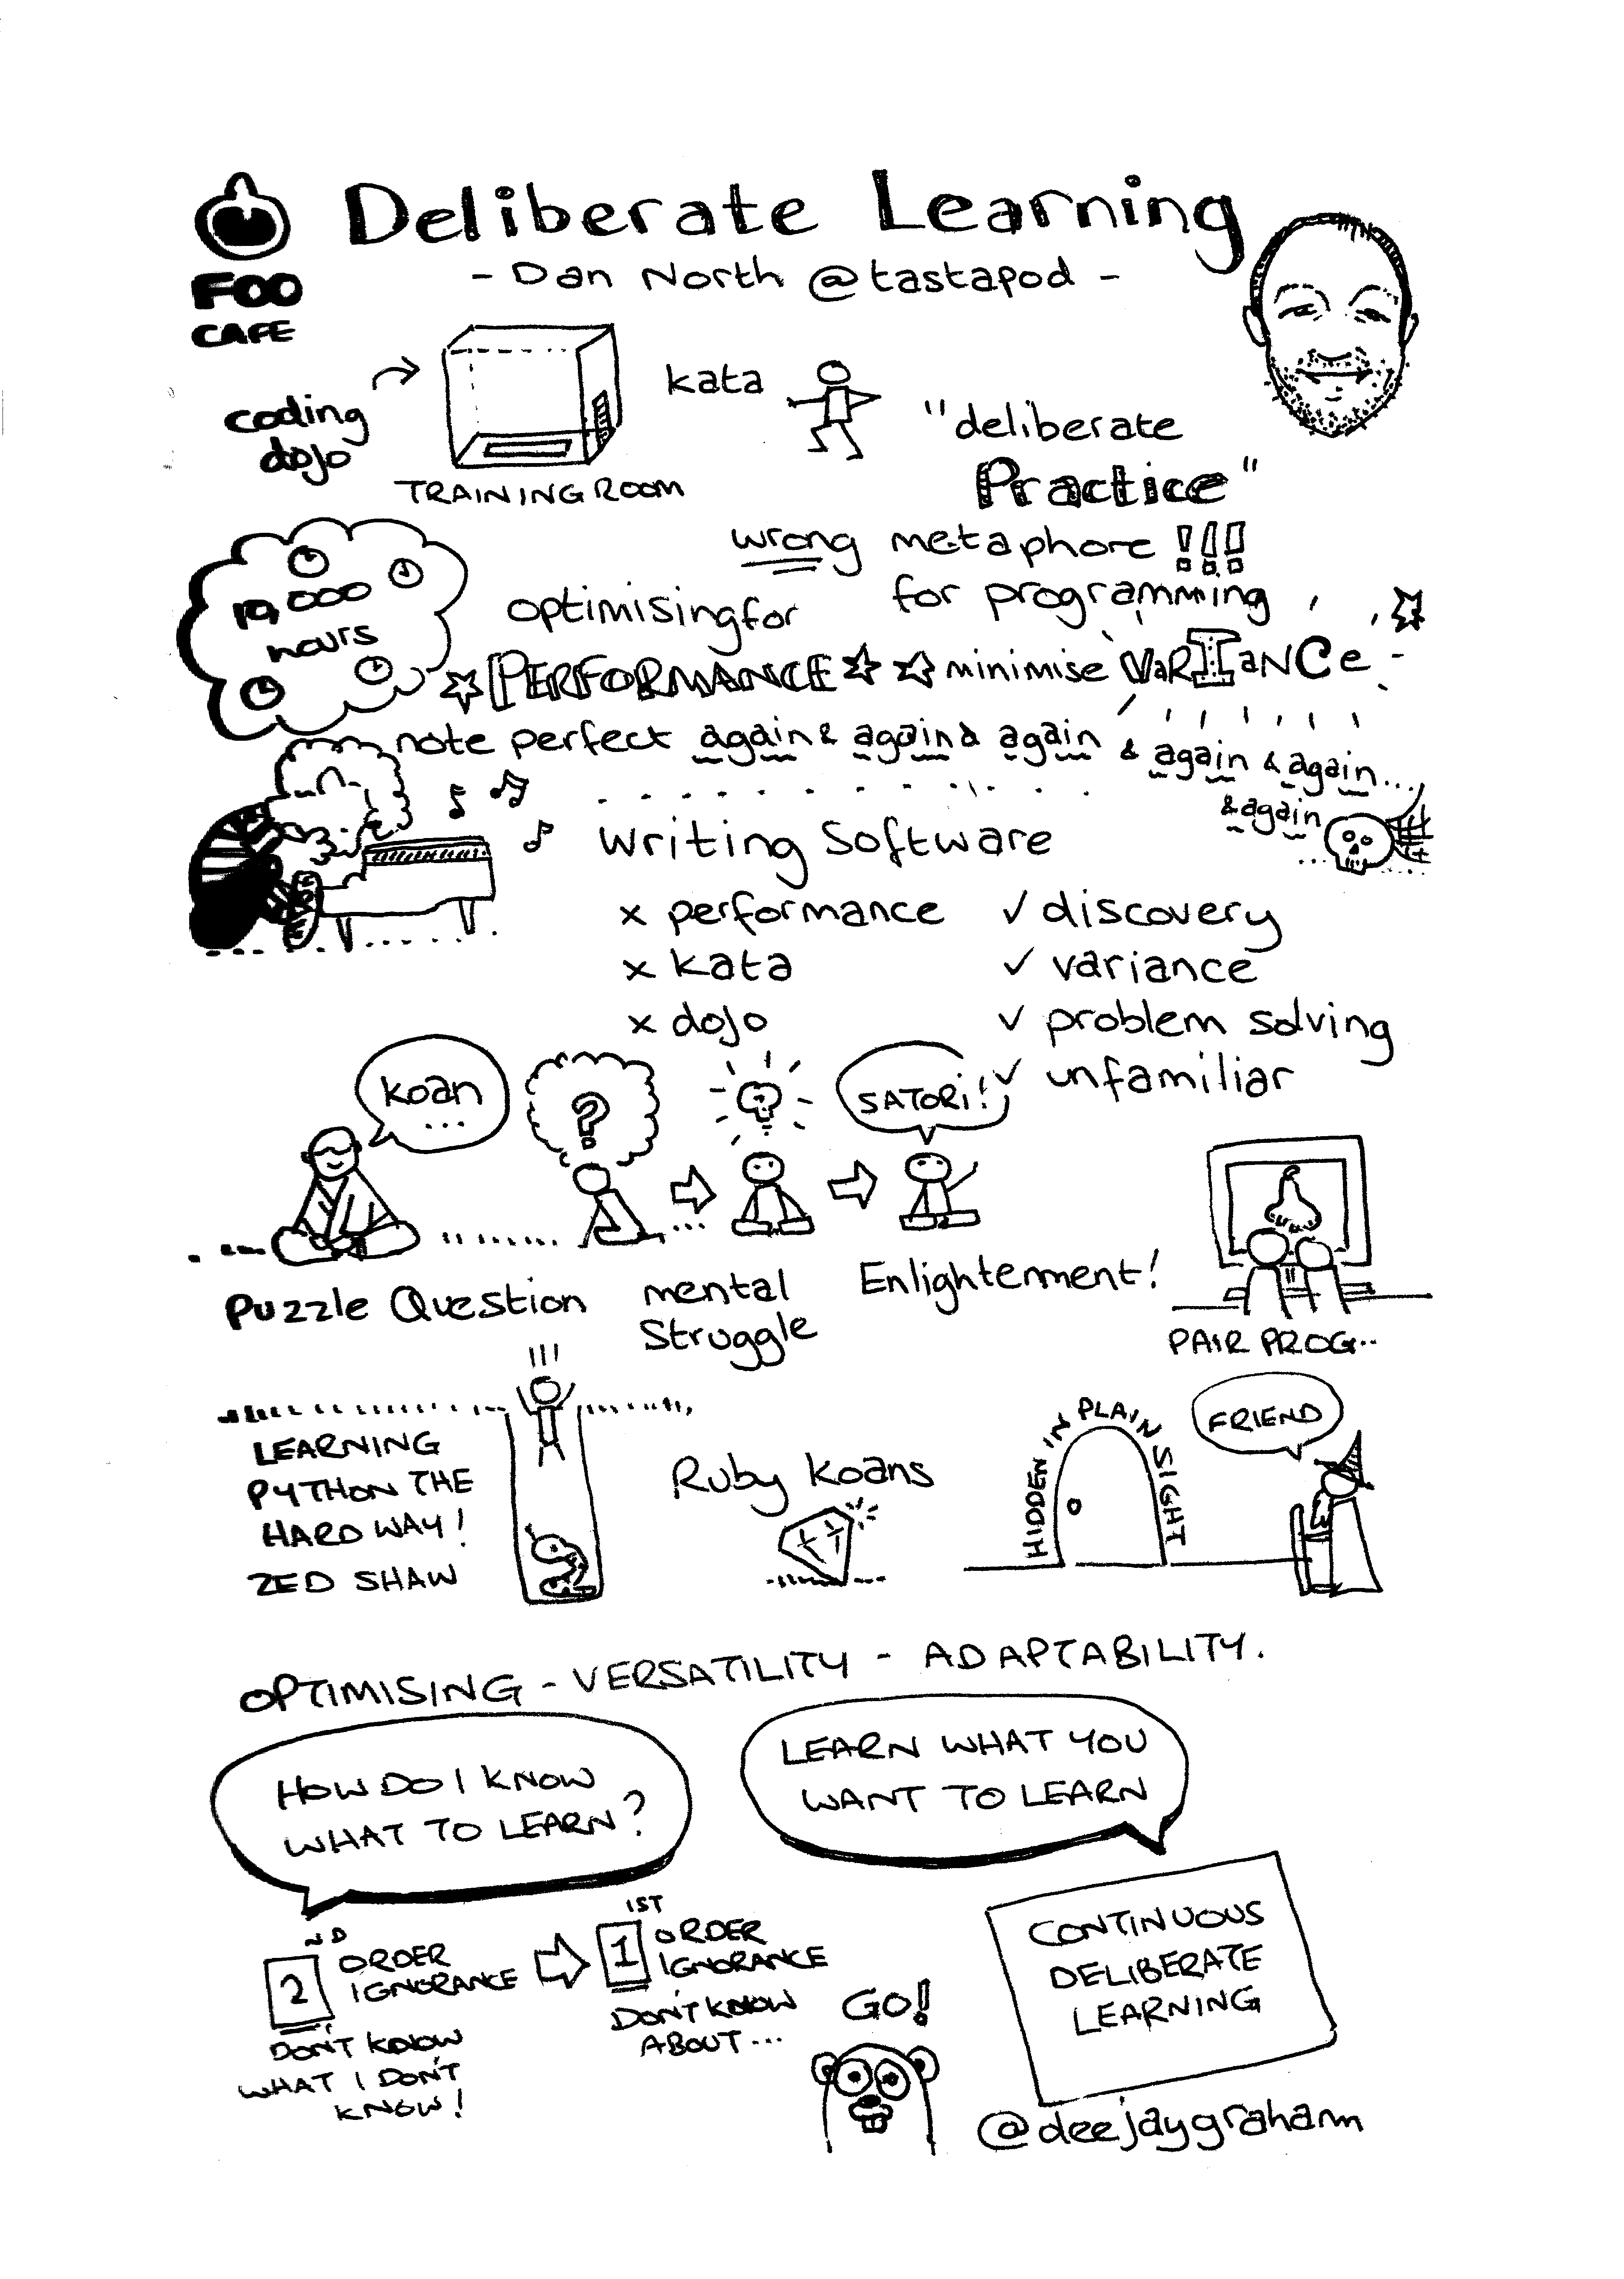 Deliberate Learning
- Dan North @tastapod -
FOO
CAFE
coding
dojo
TRAINING ROOM
kata
"deliberate
Practice"
wrong metaphore !!!
for programming
10,000
hours
optimising for
PERFORMANCE minimise VaRIaNCe
note perfect again & again & again & again & again...
& again
Writing Software
x performance
x kata
x dojo
✓ discovery
✓ variance
✓ problem solving
✓ unfamiliar
koan
...
?
SATORI!
Puzzle Question
mental
Struggle
Enlightenment!
PAIR PROG..
!!!
LEARNING
PYTHON THE
HARD WAY!
ZED SHAW
Ruby Koans
HIDDEN IN PLAIN SIGHT
FRIEND
OPTIMISING - VERSATILITY - ADAPTABILITY.
HOW DO I KNOW
WHAT TO LEARN?
LEARN WHAT YOU
WANT TO LEARN
2 ND ORDER
IGNORANCE
DON'T KNOW
WHAT I DON'T
KNOW!
1 1ST ORDER
IGNORANCE
DON'T KNOW
ABOUT...
GO!
CONTINUOUS
DELIBERATE
LEARNING
@deejaygraham